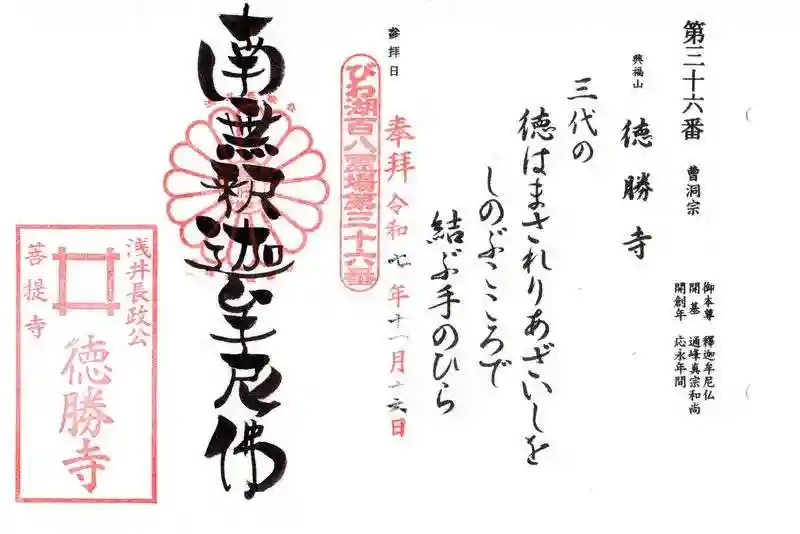 第三十六番
曹洞宗
興福山
徳勝寺
御本尊 釋迦牟尼仏
開基 通峰真宗和尚
開創年 応永年間
三代の
徳はまされりあざいしを
しのぶこころで
結ぶ手のひら
参拝日
奉拝 令和七年十一月十六日
びわ湖百八霊場第三十六番
南無釈迦牟尼佛
浅井長政公
菩提寺
徳勝寺